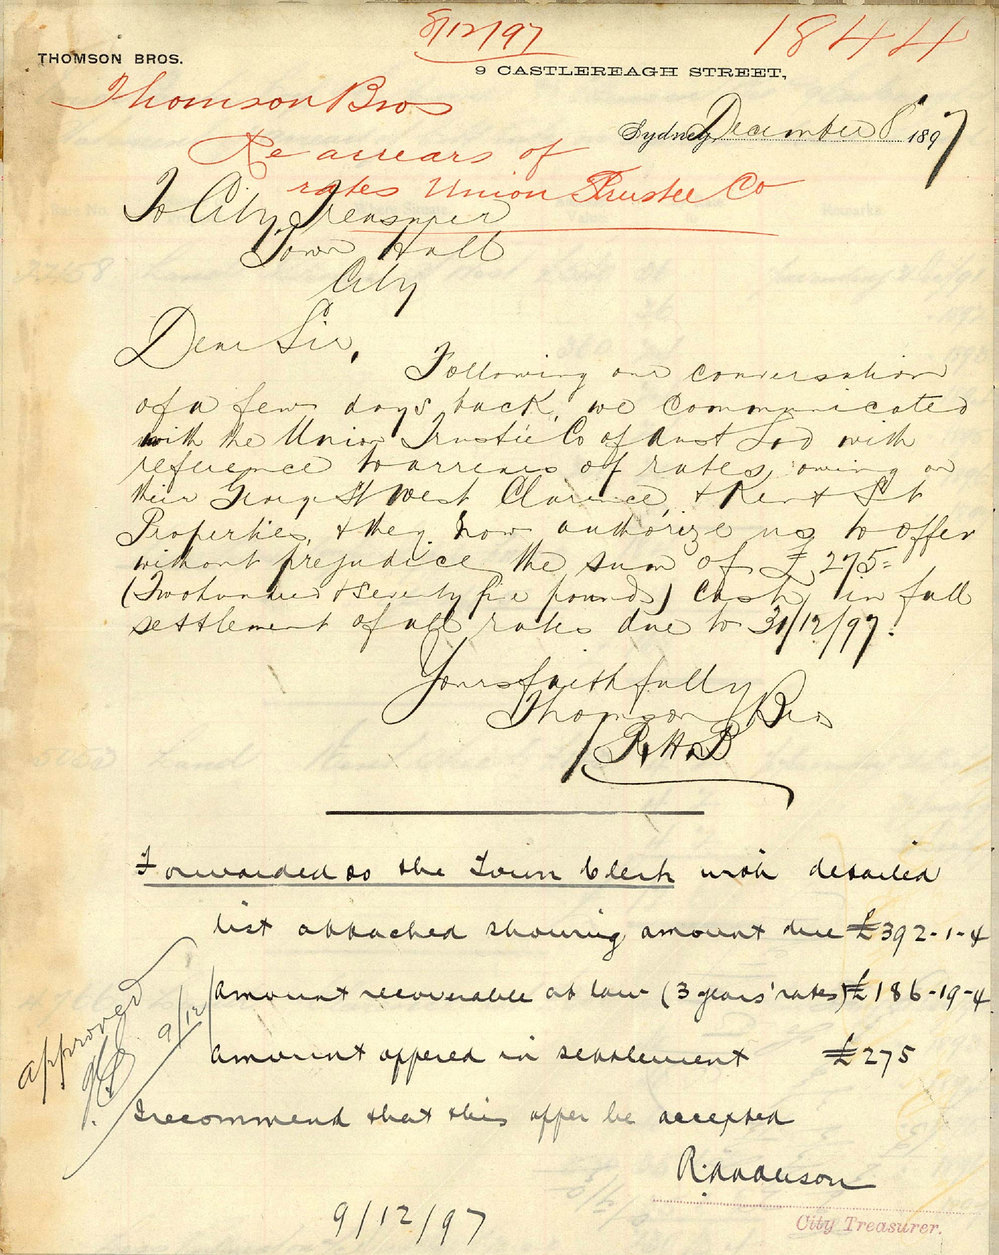 8/12/97
1844
THOMSON BROS.
9 CASTLEREAGH STREET,
Thomson Bros
Sydney, December 8 1897
Re arrears of
rates Union Trustee Co
To City Treasurer
Town Hall
City
Dear Sir,
Following our conversation
of a few days back, we communicated
with the Union Trustee Co of Aust Ltd with
reference to arrears of rates, owing on
their George St West Clarence, & Kent St
Properties, & they now authorize us to offer
without prejudice the sum of £275=
(Two hundred & seventy five pounds) cash, in full
settlement of all rates due to 31/12/97.
Yours faithfully
Thomson Bros
Forwarded to the Town Clerk with detailed
list attached showing amount due £392-1-4
amount recoverable at law (3 years' rates) £186-19-4
amount offered in settlement £275
I recommend that this offer be accepted
approved
9/12/
R. Anderson
City Treasurer.
9/12/97